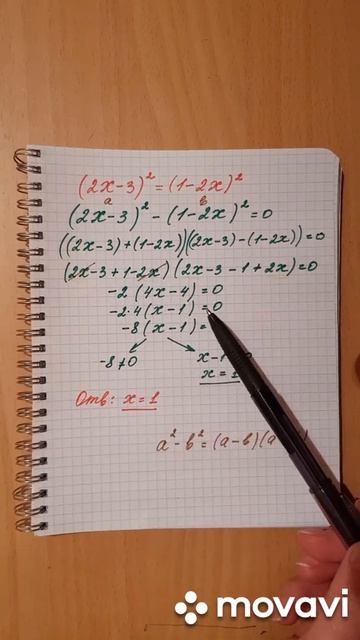 (2x-3)² = (1-2x)²
a в
(2x-3)² - (1-2x)² = 0
((2x-3)+(1-2x))((2x-3)-(1-2x)) = 0
(2x-3+1-2x)(2x-3-1+2x) = 0
-2(4x-4) = 0
-2·4(x-1) = 0
-8(x-1) =
-8≠0 x-1
x = 1
Отв: x = 1
a² - в² = (a-в)(a
movavi